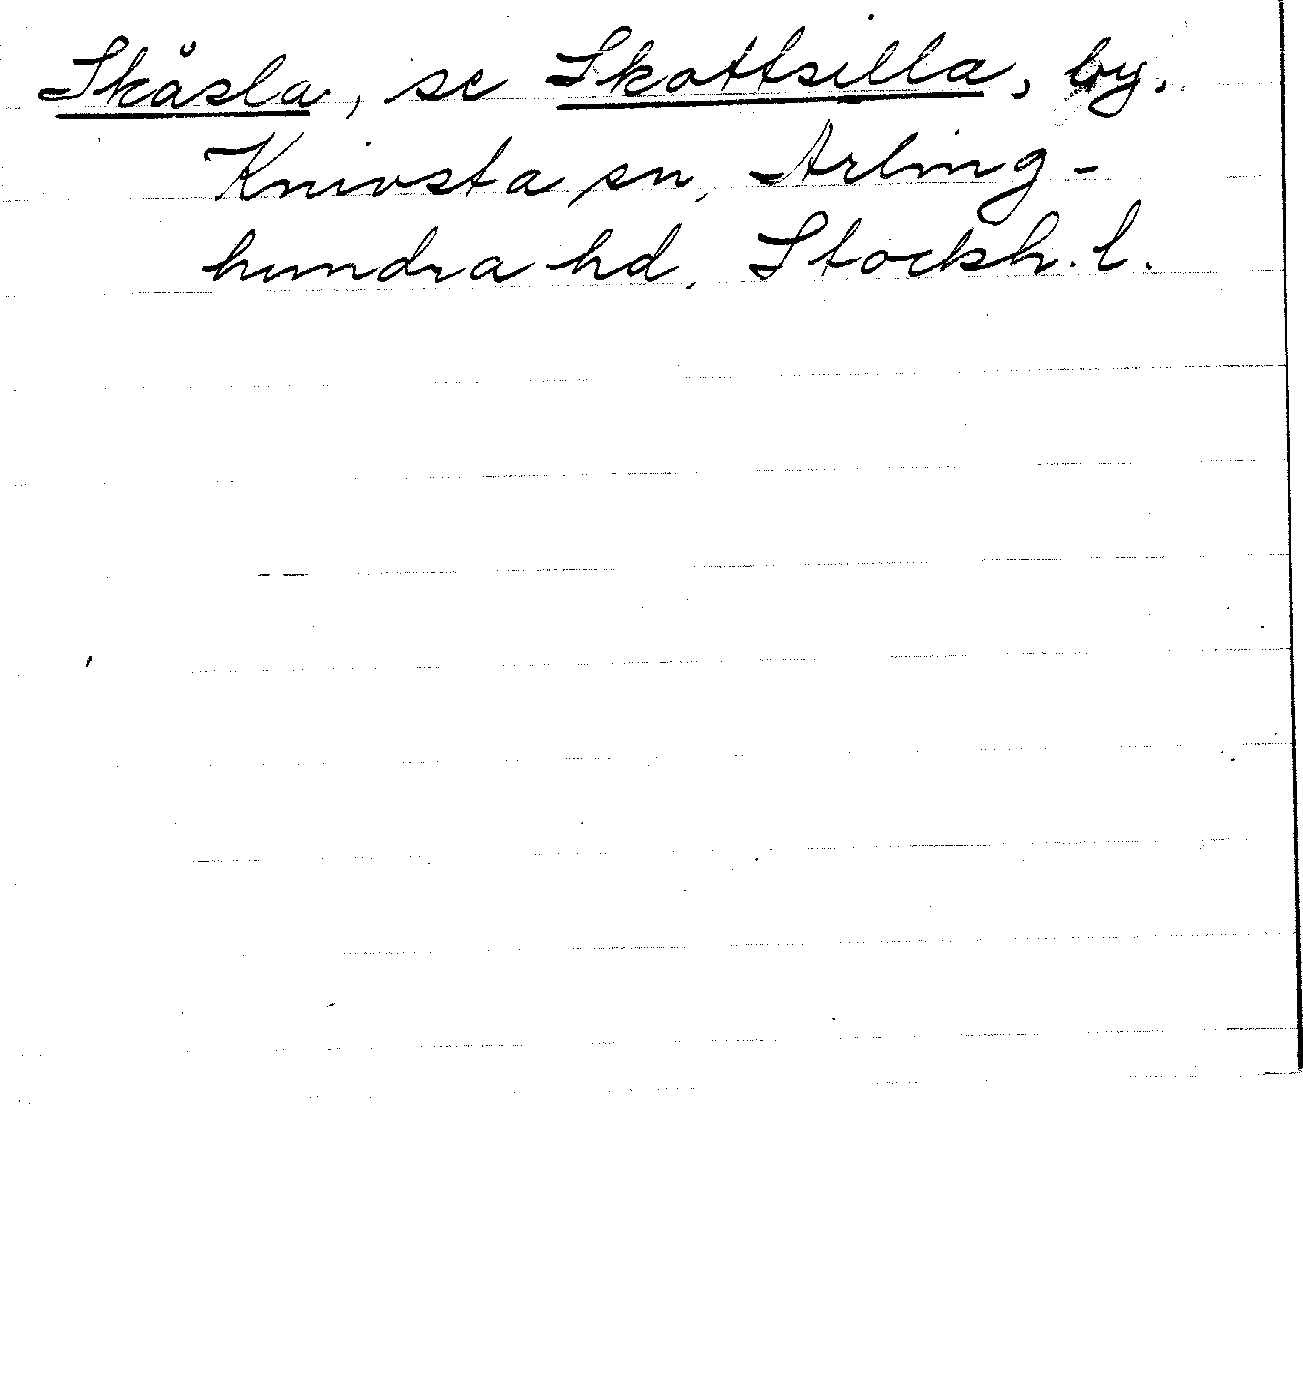 Skåsla, se Skottsilla, by,
Knivsta sn, Ärling-
hundra hd, Stockh. l.